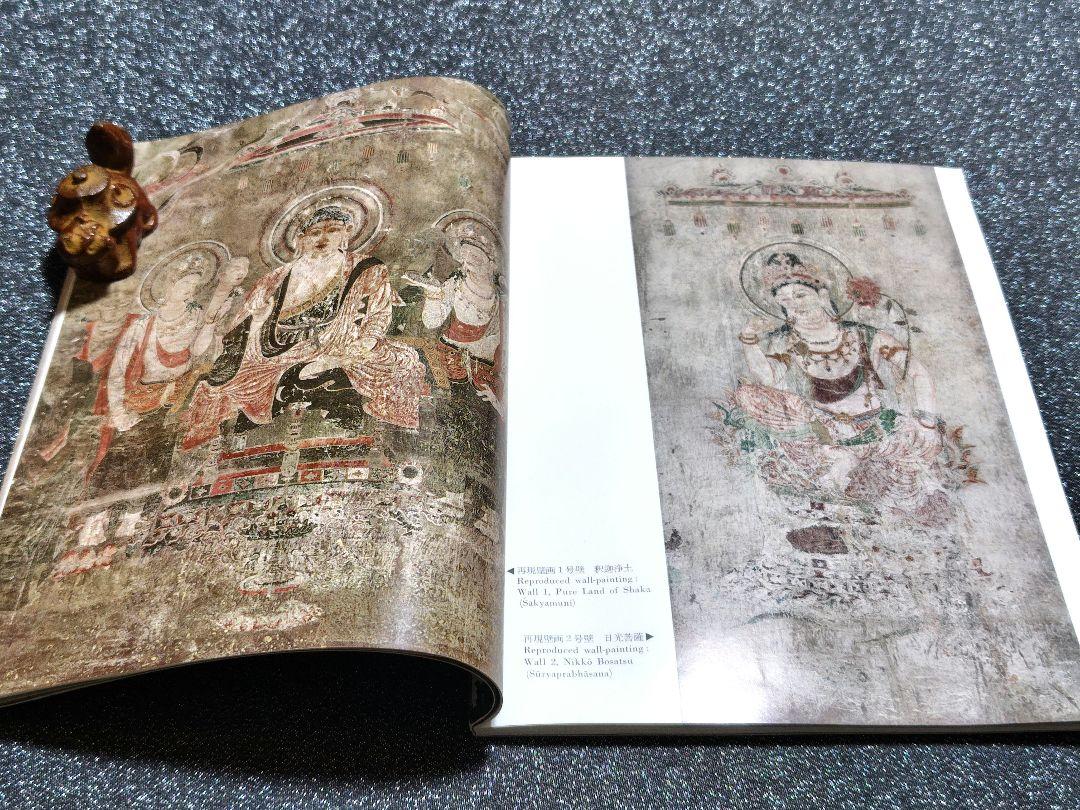 ◀再現壁画1号壁 釈迦浄土
Reproduced wall-painting:
Wall 1, Pure Land of Shaka
(Sakyamuni)
再現壁画2号壁 日光菩薩▶
Reproduced wall-painting:
Wall 2, Nikkō Bosatsu
(Sūryaprabhāsana)